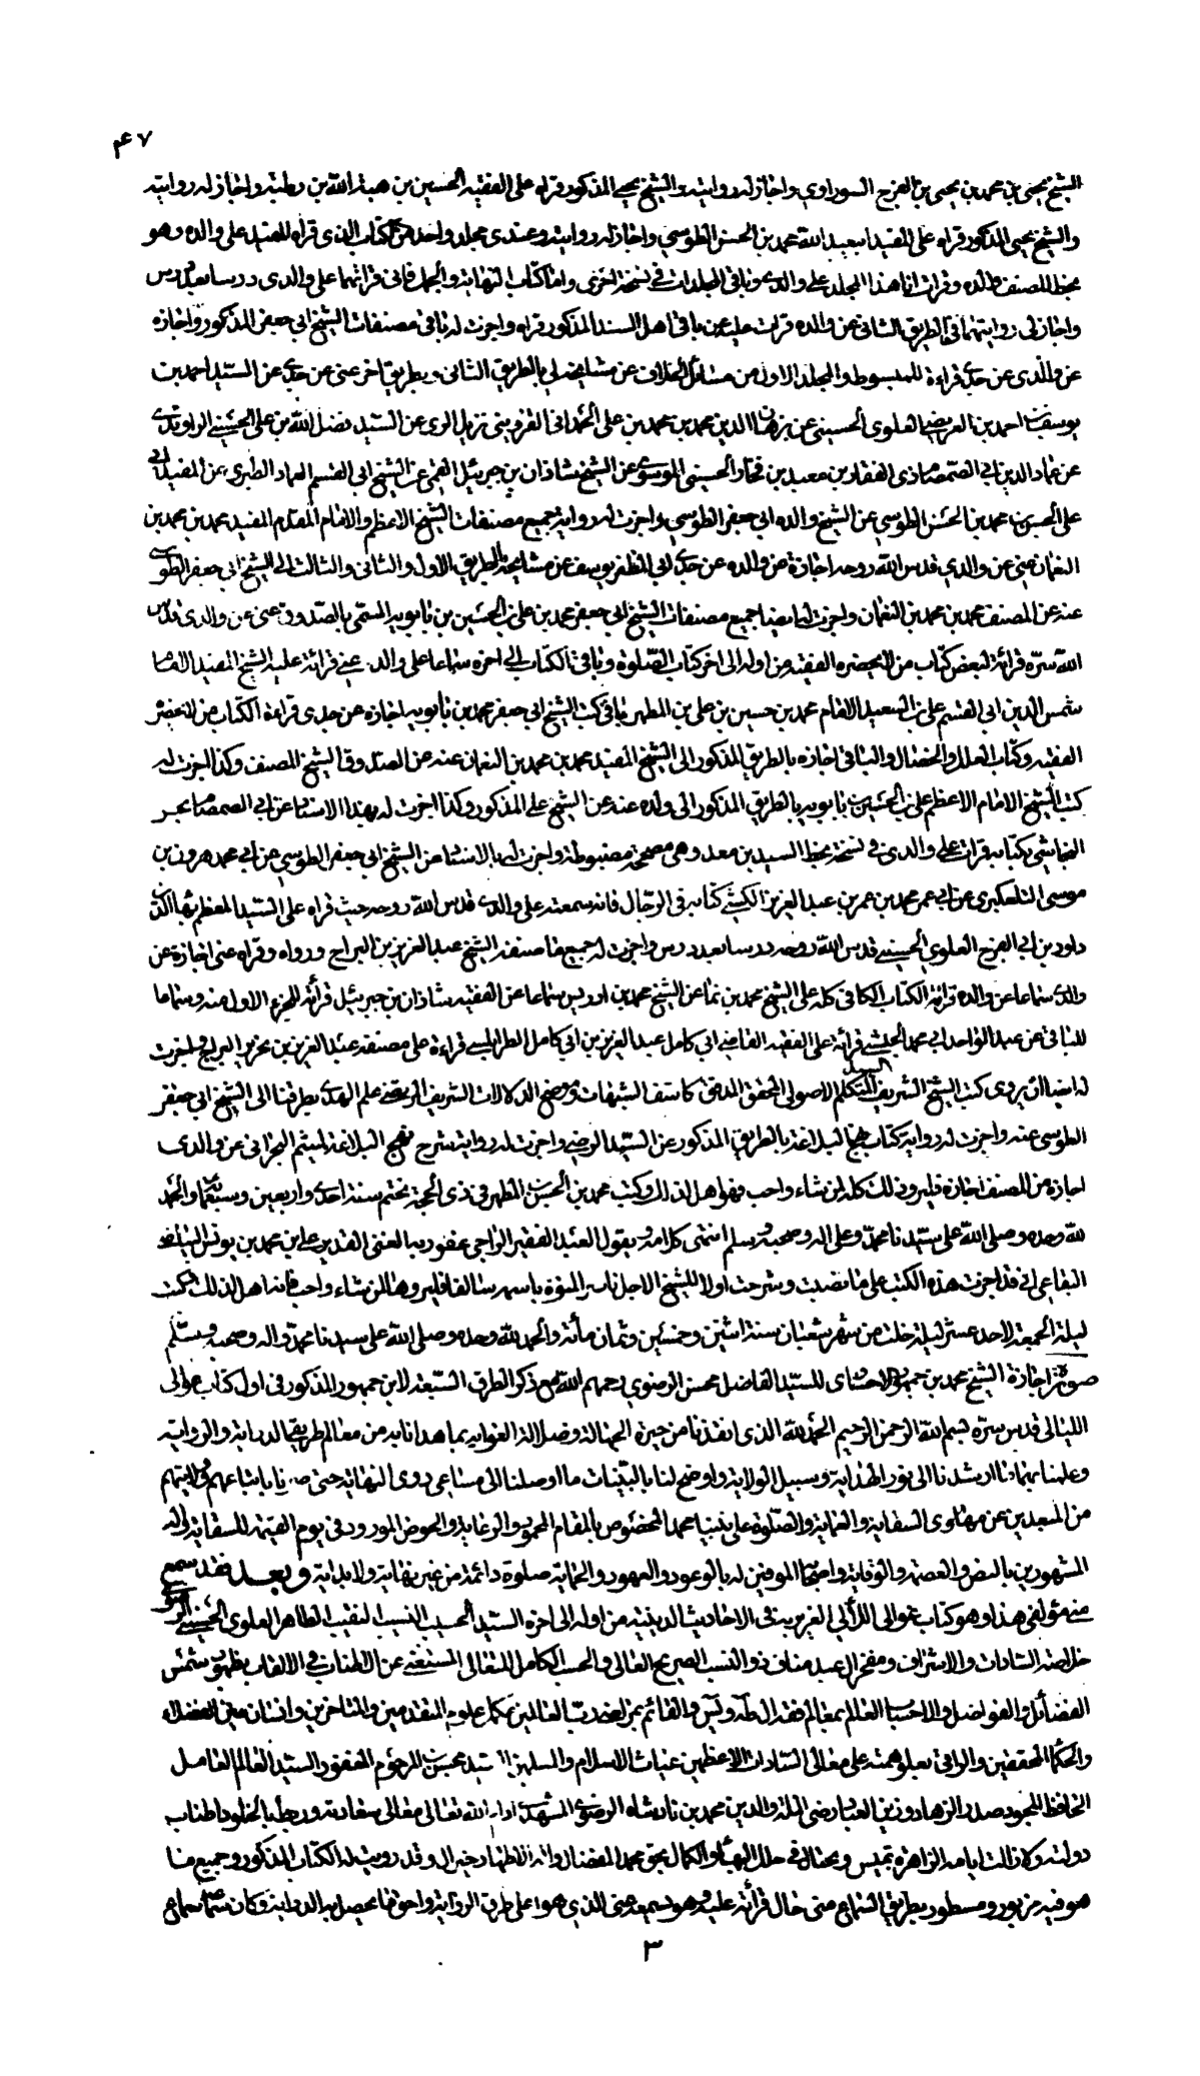 ٤٧
الشيخ يحيى بن محمد بن يحيى بن الفرج السوراوي واجاز له روايته والشيخ يحيى المذكور قراه على الفقيه الحسين بن هبة الله بن رطبة واجاز له روايته
والشيخ يحيى المذكور قراه على المفيد ابيعبد الله محمد بن الحسن الطوسي واجاز له روايته وعندى مجلد واحد من الكتاب الذى قراه المفيد على والده وهو
بخط المصنف والده وقرات انا هذا المجلد على والدى وباقى المجلدات فى نسخة اخرى واما كتاب النهاية والجمل فانى قراتهما على والدى درسا بعد درس
واجاز لى روايتهما بالطريق الثانى عن والده قرات عليه عن باقى اهل السند المذكور قراه واجزت له باقى مصنفات الشيخ ابى جعفر المذكور واجازه
عن والدى عن جدى قراءة للمبسوط والمجلد الاول من مسائل الخلاف عن مشايخه بالطريق الثانى وبطريق اخر عنى عن جدى عن السيد احمد بن
يوسف بن احمد بن العريضى العلوى الحسينى عن برهان الدين محمد بن محمد بن على الحمدانى القزوينى نزيل الرى عن السيد فضل الله بن على الحسينى الراوندى
عن عماد الدين ابى الصمصام ذى الفقار بن معبد بن فخار الحسينى الموسوى عن الشيخ شاذان بن جبرئيل القمى عن الشيخ ابى القسم العماد الطبرى عن المفيد ابى
على الحسن بن محمد بن الحسن الطوسي عن الشيخ والده ابى جعفر الطوسي واجزت له رواية جميع مصنفات الشيخ الاعظم والامام المقدم المفيد محمد بن محمد بن
النعمان عنى عن والدي قدس الله روحه اجازة عن والده عن جدى ابى المظفر يوسف عن مشايخه بالطريق الاول والثانى والثالث الى الشيخ ابى جعفر الطوسى
عنه عن المصنف محمد بن محمد بن النعمان واجزت له ايضا جميع مصنفات الشيخ ابى جعفر محمد بن على بن الحسين بن بابويه المسمى بالصدوق عنى عن والدى قدس
الله سره قرائة لبعض كتاب من لايحضره الفقيه من اوله الى اخر كتاب الصلوة وباقى الكتاب الى اخره سماعا على والدى عنى قرائة عليه الشيخ المفيد الامام
شمس الدين ابى القسم على بن السعيد الامام محمد بن حسين بن على بن المطهر باقى كتب الشيخ ابى جعفر محمد بن بابويه اجازة عن جدى قراءة الكتاب من لايحضر
الفقيه وكتاب العلل والخصال والباقى اجازه بالطريق المذكور الى الشيخ المفيد محمد بن محمد بن النعمان عنه عن الصدوق الشيخ المصنف وكذا اجزت له
كتب الشيخ الامام الاعظم على بن الحسين بن بابويه بالطريق المذكور الى ولده عنه عن الشيخ على المذكور وكذا اجزت له بهذا الاسناد عن ابى الصمصام عن
النجاشى بكتابه قرات على والدى فى نسخة بخط السيد بن معد وهى صحيحة مضبوطة واجزت له بالاسناد عن الشيخ ابى جعفر الطوسي عن ابى محمد هرون بن
موسى التلعكبرى عن ابى عمر محمد بن عمر بن عبد العزيز الكشى كتابه فى الرجال فانه سمعته على والدى قدس الله روحه حيث قراه على السيد المعظم بهاء الدين
داود بن ابى الفرج العلوي الحسينى قدس الله روحه درسا بعد درس واجزت له جميع ما صنفه الشيخ عبد العزيز بن البراج ورواه وقراه عنى اجازة عن
والدى سماعا عن والده قرائة الكتاب الكافى كله على الشيخ محمد بن نما عن الشيخ محمد بن ادريس سماعا عن الفقيه شاذان بن جبرئيل قرائة للجزء الاول منه وسماعا
للباقى عن عبد الواحد ابى محمد الحبشى قرائة على الفقيه القاضى ابى كامل عبد العزيز بن ابى كامل الطرابلسى قراءة على مصنفه عبد العزيز بن نحرير البراج واجزت
له ايضا ان يروى كتب الشيخ الشريف السيد المتكلم الاصولى المحقق المدقق كاشف الشبهات وموضح الدلالات الشريف المرتضى علم الهدى بطرقنا الى الشيخ ابى جعفر
الطوسى عنه واجزت له رواية كتاب نهج البلاغة بالطريق المذكور عن السيد الرضى واجزت له رواية شرح نهج البلاغة لميثم البحرانى عن والدى
اجازة عن المصنف اجازة فليرو ذلك كله لمن شاء واحب فهو اهل لذلك وكتب محمد بن الحسن بن المطهر فى ذى الحجة بختم سنة احدى واربعين وسبعمائة والحمد
لله وحده وصلى الله على سيدنا محمد وعلى اله وصحبه وسلم انتهى كلامه ويقول العبد الفقير الراجى عفو ربه العفى القدير على بن محمد بن يونس البياضى
النباطى انى قد اجزت هذه الكتب على ما نصبت وشرحت اولا للشيخ الاجل ناسر النبوة باسمه سالفا فليروها لمن شاء واحب فانه اهل لذلك وكتب
ليلة الجمعة لاحد عشر ليلة خلت من شهر شعبان سنة اثنتين وخمسين وثمان مائة والحمد لله وحده وصلى الله على سيدنا محمد واله وصحبه وسلم
صورة اجازة الشيخ محمد بن جمهور الاحساى للسيد الفاضل محسن الرضوى رحمهم الله مع ذكر الطرق السبعة لابن جمهور المذكور فى اول كتاب عوالى
اللئالى قدس سره بسم الله الرحمن الرحيم الحمد لله الذى انقذنا من حيرة الجهالة وضلالة الغواية بما هدانا به من معالم طريق الدراية والرواية
وعلمنا بهما ما ارشدنا الى نور الهداية وسبيل الولاية واوضح لنا بالبينات ما اوصلنا الى مساعى ذوى النهاية حتى صرنا باتباعهم وولايتهم
من المبعدين عن مهاوى السفاية والعماية والصلوة على نبينا محمد المخصوص بالمقام المحمود والرعاية والحوض المورود فى يوم القيمة للسقاية واله
المشهورين بالنص والعصمة والوقاية واصحابه الموفين له بالوعود والعهود والحماية صلوة دائمة من غير نهاية ولا بداية وبعد فقد سمع
منى مؤلفى هذا وهو كتاب عوالى اللألى العزيزية فى الاحاديث الدينية من اوله الى اخره السيد الحسيب النسيب النقيب الطاهر العلوى الحسينى الرضوى
خلاصة السادات والاشراف ومفخر ال عبد مناف ذو النسب الصريح العالى والحسب الكامل المتعالى المستغنى عن الاطناب فى الالقاب بظهور شمس
الفضائل والفواضل والاحساب العالم بمعالم فقه ال طه ويس والقائم بمراضى رب العالمين مكمل علوم المتقدمين والمتاخرين وانسان عين الفضلاء
والحكما المحققين والراقى بعلو همته على معالى السادات الاعظمين غياث الاسلام والمسلمين السيد محسن بن المرحوم المغفور السيد العالم الفاضل
الحافظ المجود صدر الزهاد وزين العباد رضى الملة والدين محمد بن نادشاه الرضوى المشهدى ادام الله تعالى معالى سعادته وربط بالخلود اطناب
دولته ولا زالت ايامه الزاهرة تميس ويختال فى حلل البهاء والكمال بحق محمد المفضال واله الاطهار خير ال وقد رويت له الكتاب المذكور وجميع ما
هو فيه مزبور ومسطور بطريق السماع منى حال قرائته عليه وهو يسمعه عنى الذي هو اعلى طرق الرواية واحق ما يحصل به الدراية وكان سماعه سماع
٣